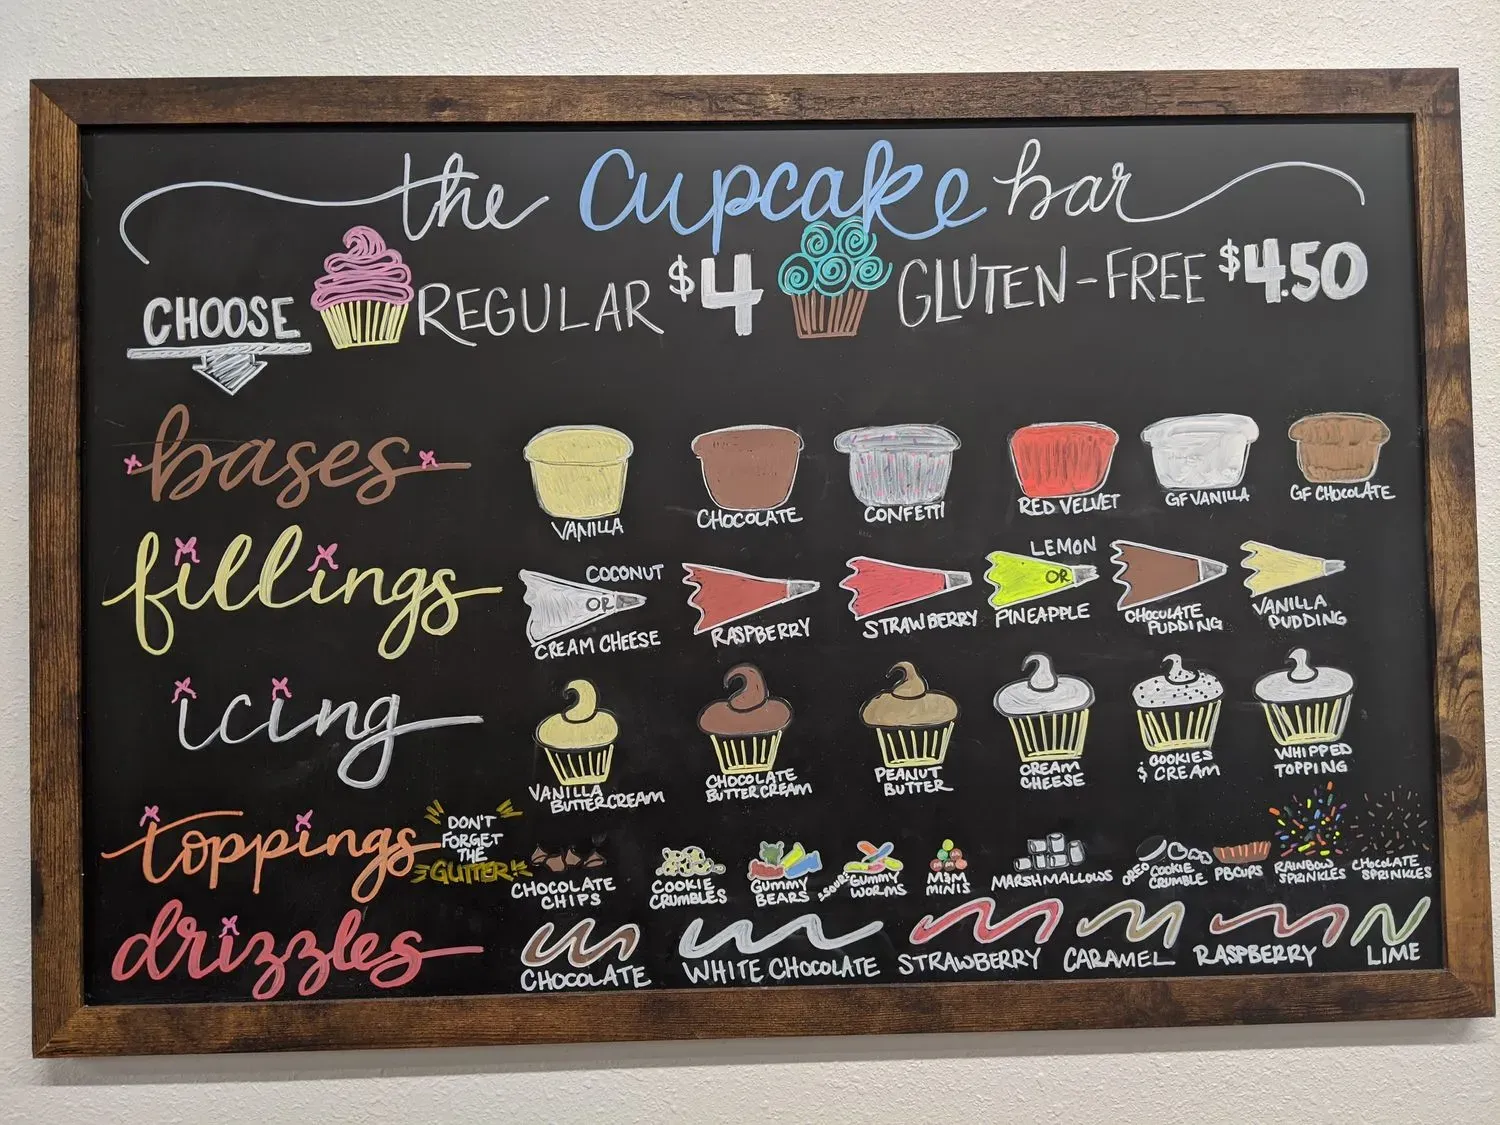 the Cupcake bar
CHOOSE REGULAR $4 GLUTEN-FREE $4.50
bases
VANILLA CHOCOLATE CONFETTI RED VELVET GF VANILLA GF CHOCOLATE
fillings
COCONUT OR CREAM CHEESE
RASPBERRY
STRAWBERRY
LEMON OR PINEAPPLE
CHOCOLATE PUDDING
VANILLA PUDDING
icing
VANILLA BUTTERCREAM
CHOCOLATE BUTTERCREAM
PEANUT BUTTER
CREAM CHEESE
COOKIES & CREAM
WHIPPED TOPPING
toppings
DON'T FORGET THE GLITTER
CHOCOLATE CHIPS
COOKIE CRUMBLES
GUMMY BEARS
SOUR GUMMY WORMS
M&M MINIS
MARSHMALLOWS
OREO COOKIE CRUMBLE
PB CUPS
RAINBOW SPRINKLES
CHOCOLATE SPRINKLES
drizzles
CHOCOLATE WHITE CHOCOLATE STRAWBERRY CARAMEL RASPBERRY LIME